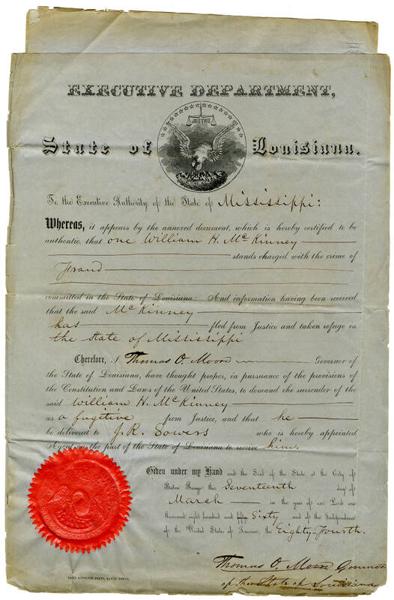 EXECUTIVE DEPARTMENT,
State of Louisiana.
JUSTICE
To the Executive Authority of the State of Mississippi:
Whereas, it appears by the annexed document, which is hereby certified to be
authentic, that one William H. McKinney
stands charged with the crime of
Fraud
committed in the State of Louisiana. And information having been received
that the said McKinney
has fled from Justice and taken refuge in
the State of Mississippi
Therefore, I Thomas O. Moore Governor of
the State of Louisiana, have thought proper, in pursuance of the provisions of
the Constitution and Laws of the United States, to demand the surrender of the
said William H. McKinney
as a fugitive from Justice, and that he
be delivered to J.R. Sowers who is hereby appointed
Agent on the part of the State of Louisiana to receive him
Given under my Hand and the Seal of the State at the City of
Baton Rouge this Seventeenth day of
March in the year of our Lord one
thousand eight hundred and fifty Sixty and of the Independence
of the United States of America, the Eighty-Fourth.
Thomas O. Moore Governor
of the State of Louisiana